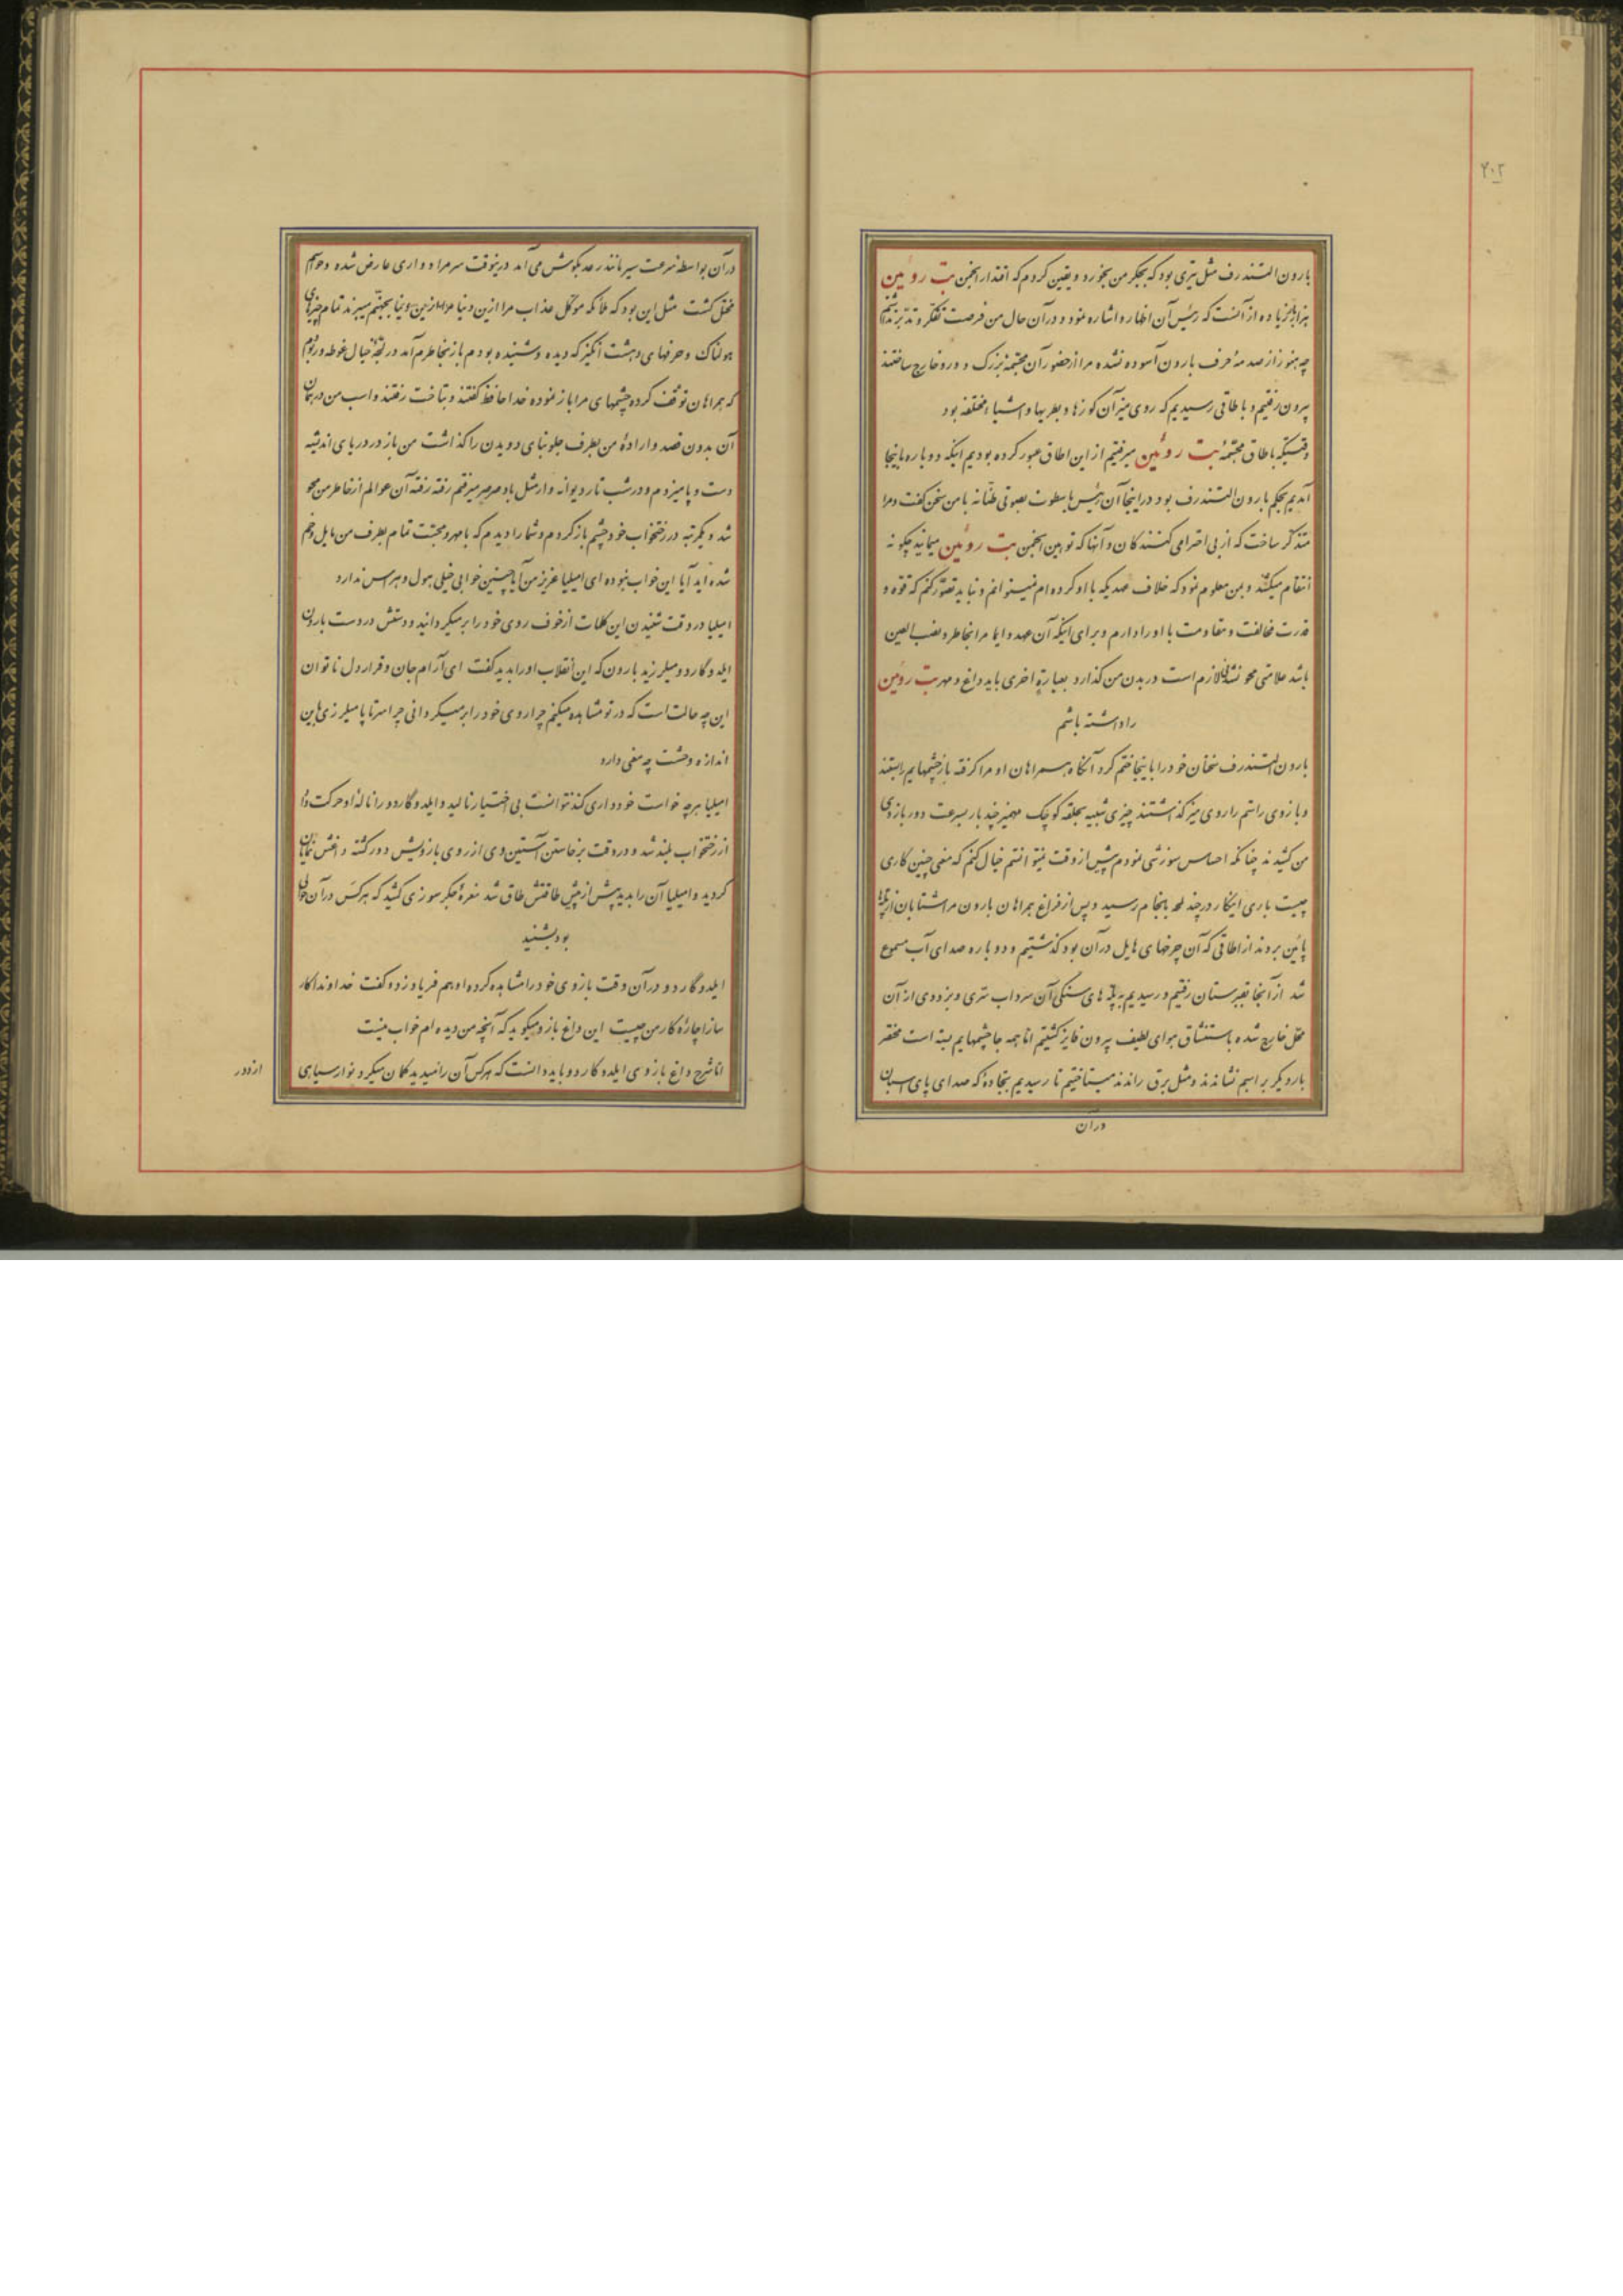 ۲۰۲
بارون التندرف مثل تیری بود که بجگر من بخورد و یقین کردم که اقتدار انجمن بت روئین
هزار بار زیاده از آنست که رئیس آن اظهار و اشاره نمود و در آن حال من فرصت تفکر و تدبر نداشتم
چه هنوز از صدمهٔ حرف بارون آسوده نشده مرا از حضور آن مجسّمهٔ بزرگ دور و خارج ساختند
بیرون رفتیم و باطاقی رسیدیم که روی میز آن کوزها و بطریها و اشیاء مختلفه بود
وقتیکه باطاق مجسّمهٔ بت روئین میرفتیم از این اطاق عبور کرده بودیم اینکه دوباره باینجا
آمدیم بحکم بارون التندرف بود در اینجا آن رئیس با سطوت بصوتی طنّانه با من سخن گفت و مرا
متذکر ساخت که از بی احترامی کنندگان و آنها که توهین انجمن بت روئین مینمایند چگونه
انتقام میکشد و بمن معلوم نمود که خلاف عهدیکه با او کرده ام نمیتوانم و نباید تصوّر کنم که قوّه و
قدرت مخالفت و مقاومت با او را دارم و برای اینکه آن عهد دایما مرا بخاطر و نصب العین
باشد علامتی محو نشدنی لازم است در بدن من گذارد بعبارة اخری باید داغ و مهر بت روئین
را داشته باشم
بارون التندرف سخنان خود را باینجا ختم کرد آنگاه همراهان او مرا گرفته باز چشمهایم را بستند
و بازوی راستم را روی میز گذاشتند چیزی شبیه بحلقه کوچک مهمیز چند بار بسرعت دور بازوی
من کشیدند چنانکه احساس سوزشی نمودم پیش از وقت نمیتوانستم خیال کنم که معنی چنین کاری
چیست باری اینکار در چند لمحه بانجام رسید و پس از فراغ همراهان بارون مرا شتابان از پلّها
پائین بردند از اطاقی که آن چرخهای هایل در آن بود گذشتیم و دوباره صدای آب مسموع
شد از آنجا بقبرستان رفتیم و رسیدیم به پلّه های سنگی آن سرداب ستری و بزودی از آن
محل خارج شده باستنشاق هوای لطیف بیرون فایز گشتیم امّا همه جا چشمهایم بسته است مختصر
بار دیگر بر اسبم نشاندند و مثل برق راندند میتاختیم تا رسیدیم بجادهٔ که صدای پای اسبان
در آن
در آن بواسطه سرعت سیر مانند رعد بگوش می آمد درینوقت سر مرا دواری عارض شده و حواسم
مختل گشت مثل این بود که ملائکه موکل عذاب مرا ازین دنیا بجهنّم میبرند تمام چیزهای
هولناک و حرفهای دهشت انگیز که دیده و شنیده بودم باز بخاطرم آمد در لجّهٔ خیال غوطه ور بودم
که همراهان توقف کرده چشمهای مرا باز نموده خدا حافظ گفتند و بتاخت رفتند و اسب من در همان
آن بدون قصد و ارادهٔ من بطرف جلو بنای دویدن را گذاشت من باز در دریای اندیشه
دست و پا میزدم و در شب تار دیوانه وار مثل باد صرصر میرفتم رفته رفته آن عوالم از خاطر من محو
شد و یکمرتبه در رختخواب خود چشم باز کردم و شما را دیدم که با مهر و محبّت تمام بطرف من مایل و خم
شده اید آیا این خواب نبوده ای امیلیا عزیز من آیا چنین خوابی خیلی هول و هراس ندارد
امیلیا در وقت شنیدن این کلمات از خوف روی خود را بر میگردانید و دستش در دست بارون
ایلدوگاردو میلرزید بارون که این انقلاب او را بدید گفت ای آرام جان و قرار دل ناتوان
این چه حالت است که در تو مشاهده میکنم چرا روی خود را بر میگردانی چرا سر تا پا میلرزی باین
اندازه وحشت چه معنی دارد
امیلیا هر چه خواست خودداری کند نتوانست بی اختیار نالید و ایلدوگاردو را نالهٔ او حرکت داد
از رختخواب بلند شد و در وقت برخاستن آستین وی از روی بازویش دور گشته داغش نمایان
گردید و امیلیا آن را بدید پیش از پیش طاقتش طاق شد نعرهٔ جگر سوزی کشید که هر کس در آن حوالی
بود بشنید
ایلدوگاردو در آن وقت بازوی خود را مشاهده کرده او هم فریاد زده گفت خداوندا کار
سازا چارهٔ کار من چیست این داغ بازو میگوید که آنچه من دیده ام خواب نیست
امّا شرح داغ بازوی ایلدوگاردو باید دانست که هر کس آن را میدید گمان میکرد نوار سیاهی
از دور